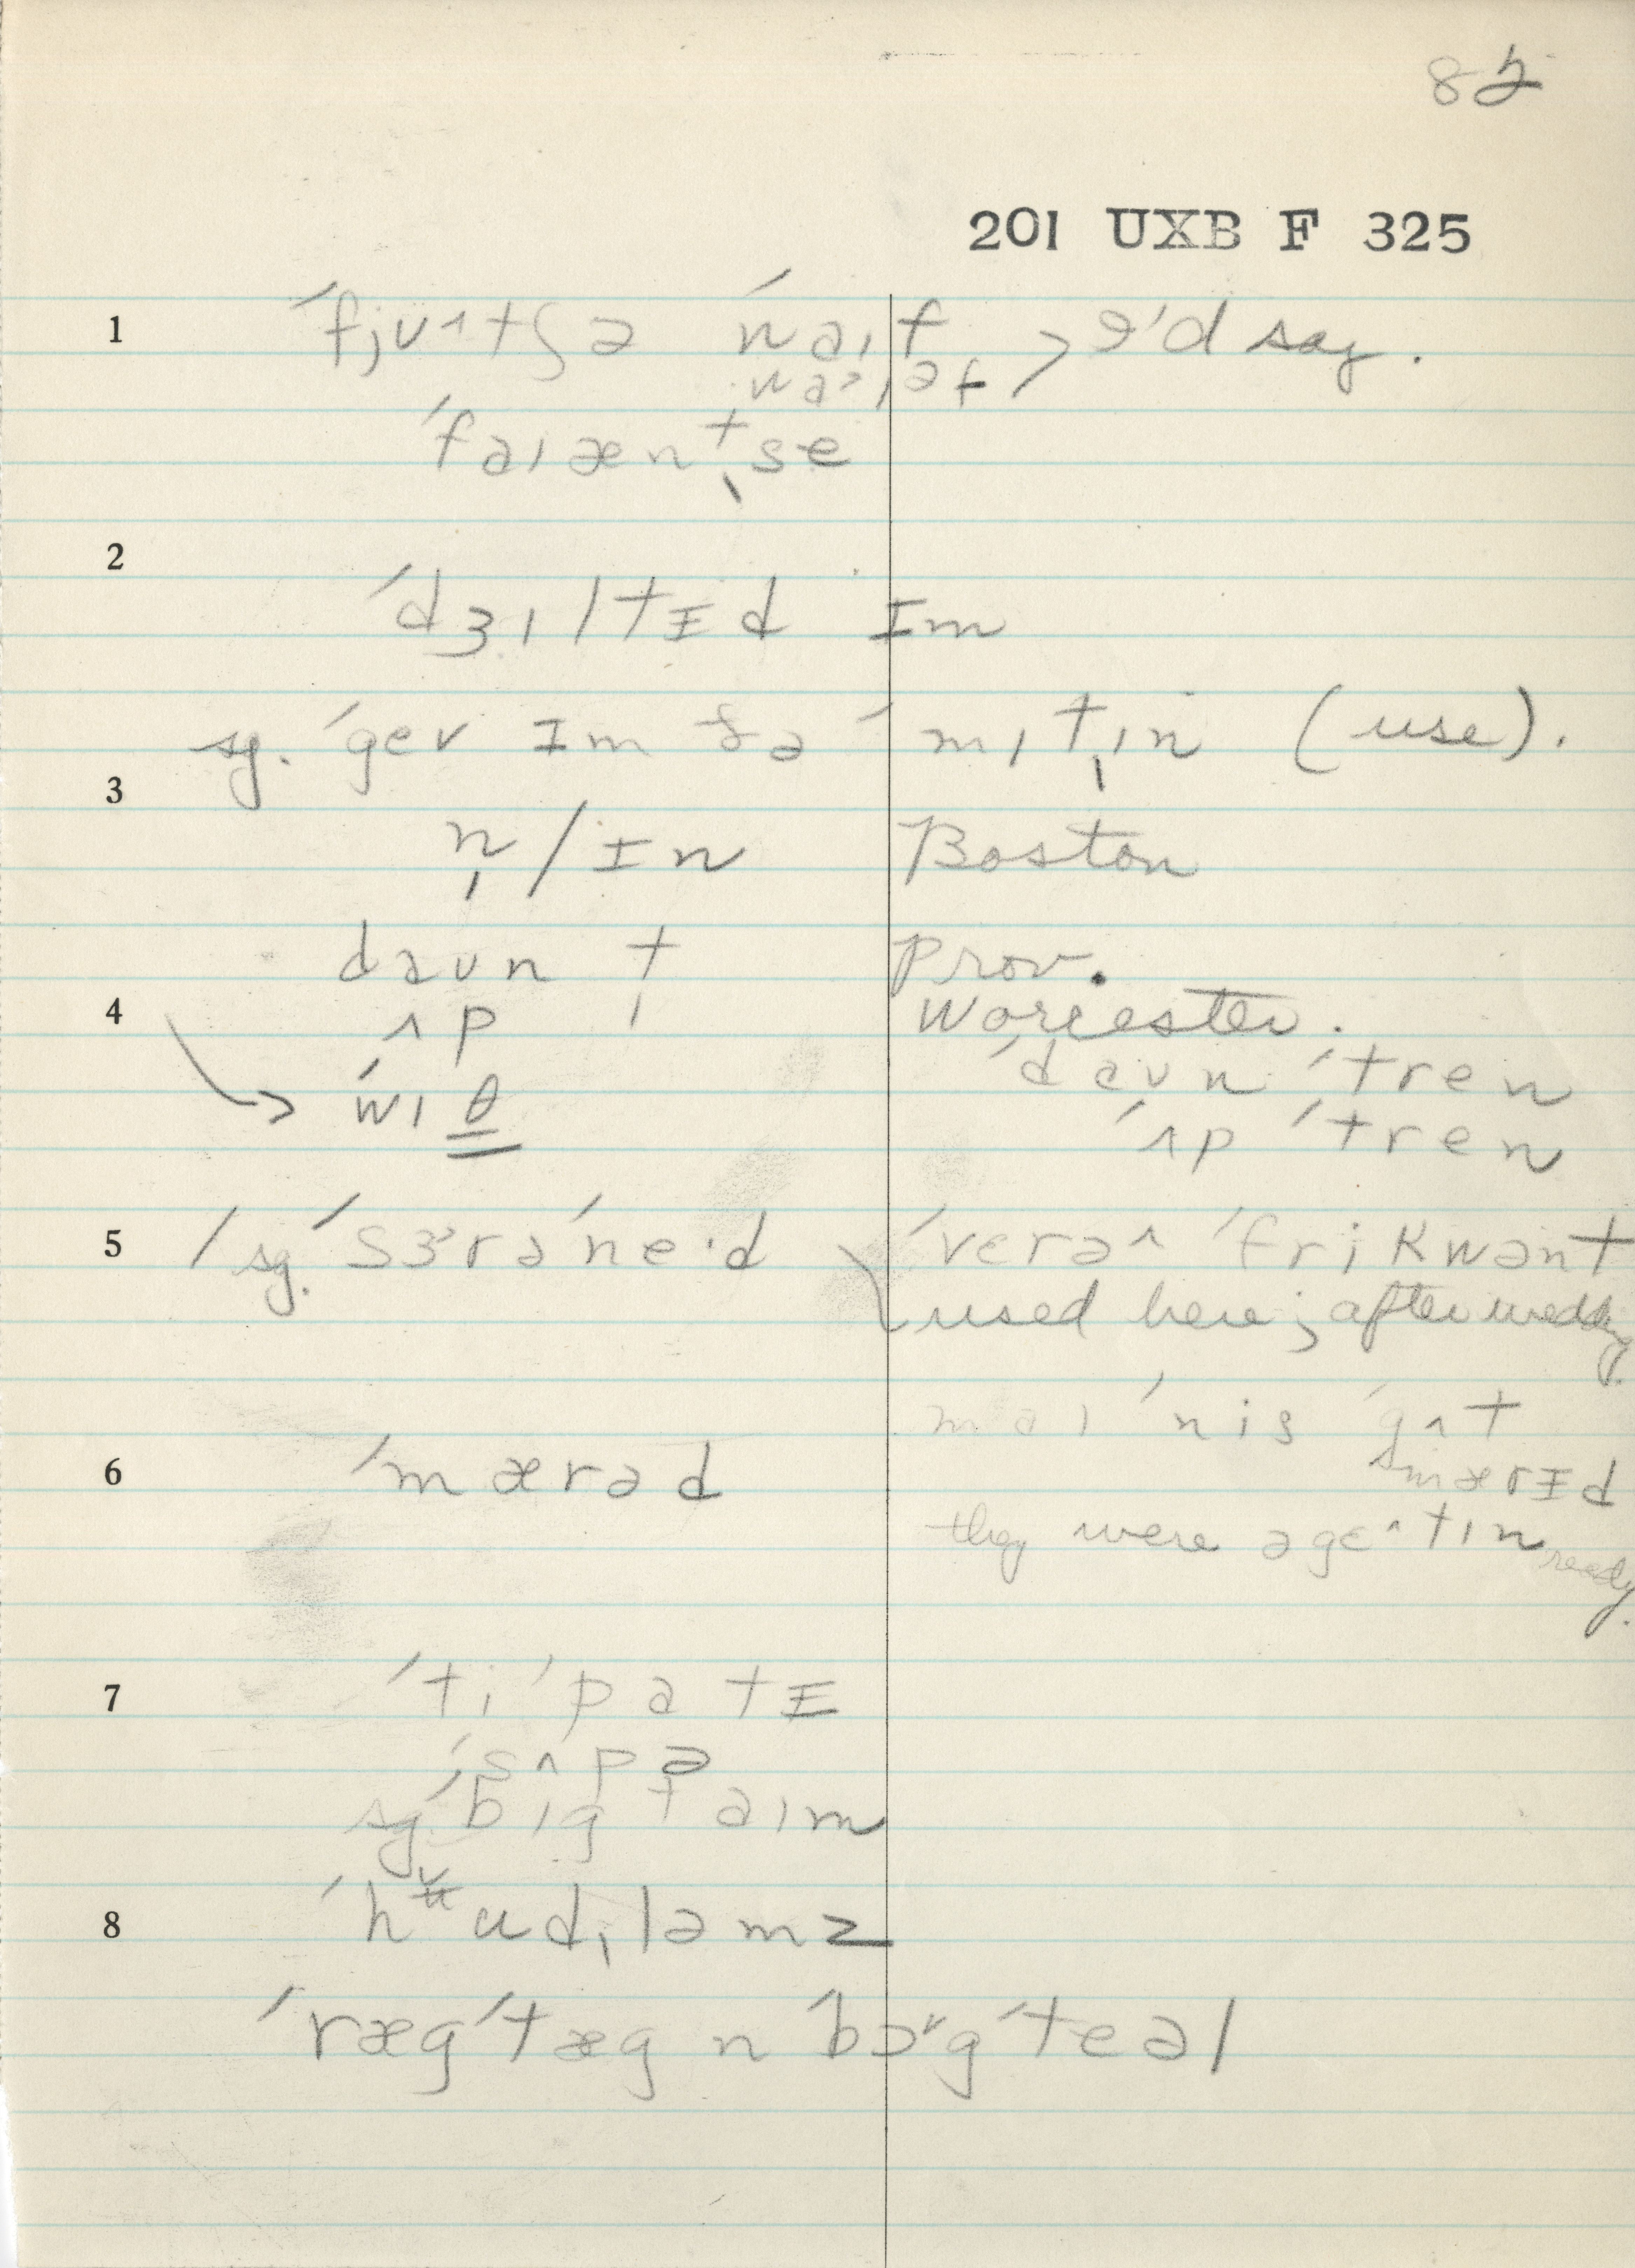 82
201 UXB F 325
1 ˈfjʊ^tʃə ˈwaɪf > I'd say.
waˀɪəf
ˈfaɪænˌtse
2
ˈdʒɪltɪd ɪm
sg. ˈgev ɪm ðə ˈmɪtˌɪn (use).
3
n̩ / ɪn Boston
daʊn t Prov.
4 ʌp ˌ Worcester.
ˈdaʊn ˈtren
→ ˈwɪθ
ˈʌp ˈtren
5 / sg. ˈsɜrəˈne·d ˈverə^ ˈfrikwənt
used here; after wedding.
maɪ ˈnis ˈgʌt
6 ˈmærəd ˈmærɪd
they were əge^tɪn ready.
7 ˈti ˈpatɪ
ˈsʌpə
sg. ˈbɪg taɪm
8 ˈhudˌləmz
ˈrægˈtæg n ˈbɔˇgˈteəl